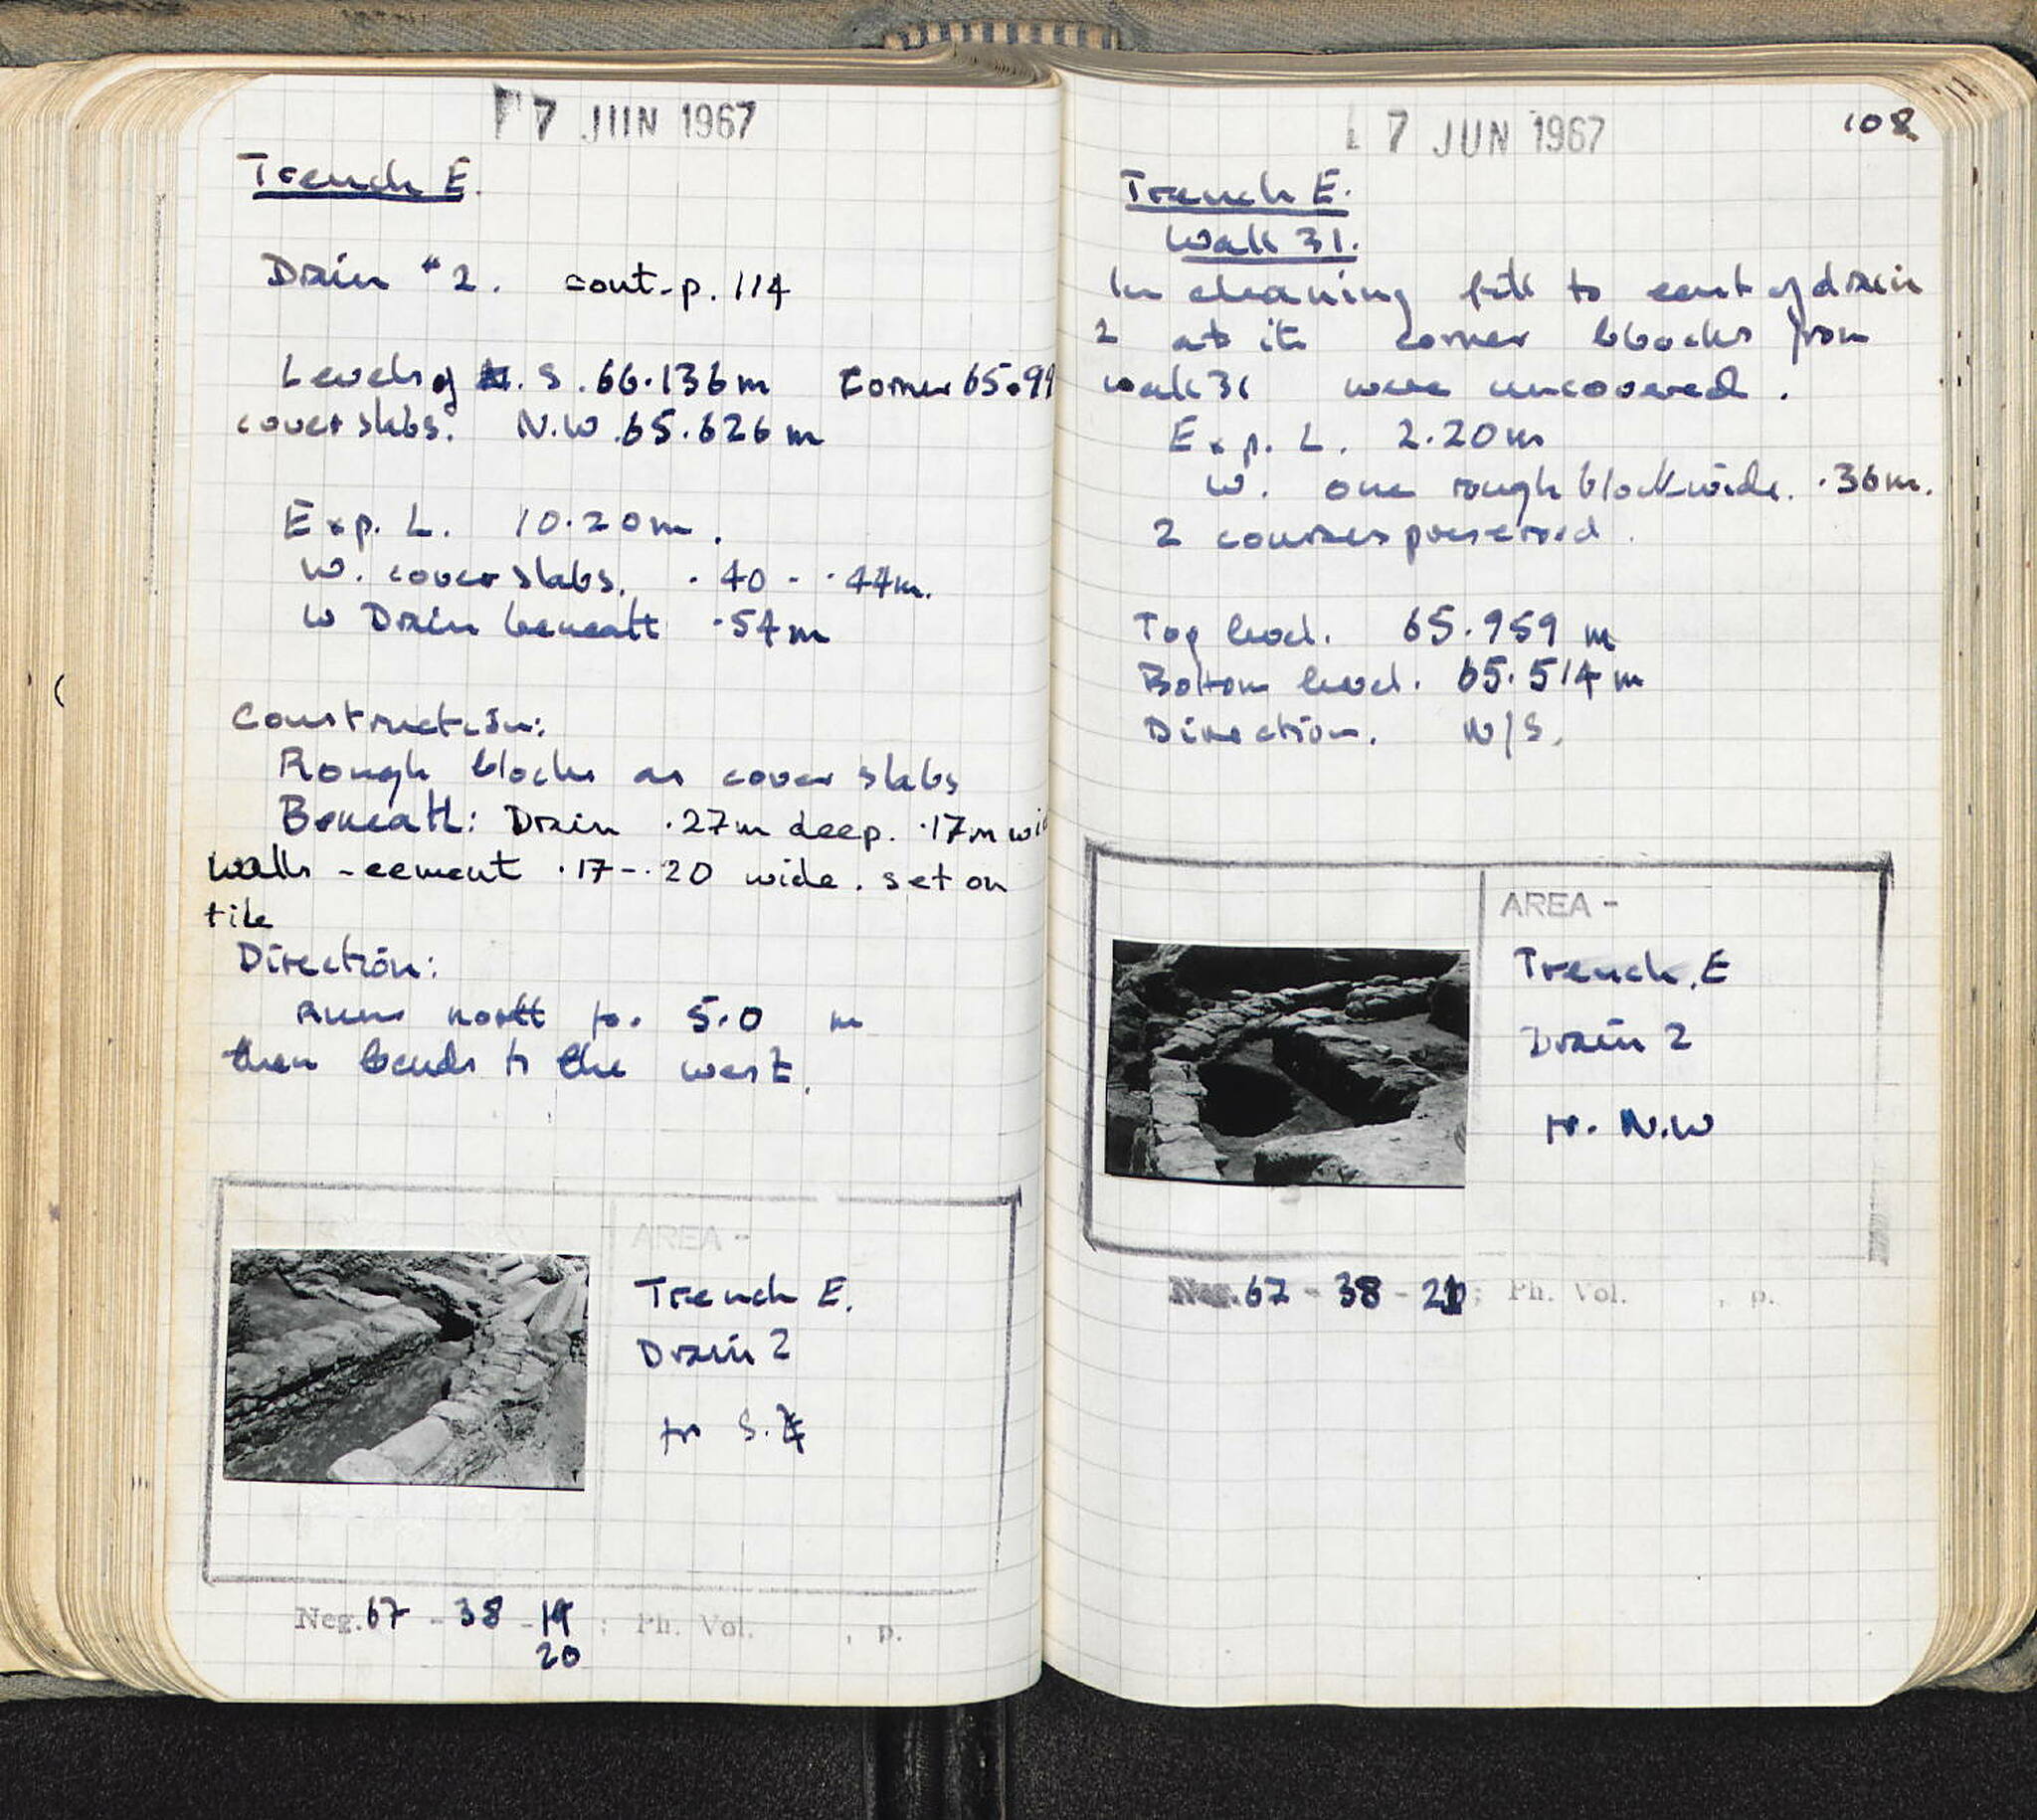 7 JUN 1967
Trench E.
Drain #2. cont-p. 114
Levels of S. 66.136m Corner 65.99
cover slabs. N.W. 65.626m
Exp. L. 10.20m.
W. cover slabs. .40 - .44m.
W Drain beneath .54m
Construction:
Rough blocks as cover slabs
Beneath: Drain .27m deep. .17m wi
walls - cement .17-.20 wide. set on
tile
Direction:
Runs north for 5.0 m
then bends to the west.
AREA -
Trench E.
Drain 2
to S.
Neg. 67 - 38 - 19 ; Ph. Vol. , p.
20
7 JUN 1967
108
Trench E.
Wall 31.
In cleaning fill to east of drain
2 at its corner blocks from
wall 31 were uncovered.
Exp. L. 2.20m
W. one rough block wide. .36m.
2 courses preserved.
Top level. 65.959 m
Bottom level. 65.514 m
Direction. N/S.
AREA -
Trench E
Drain 2
to. N.W
Neg. 67 - 38 - 21 ; Ph. Vol. , p.